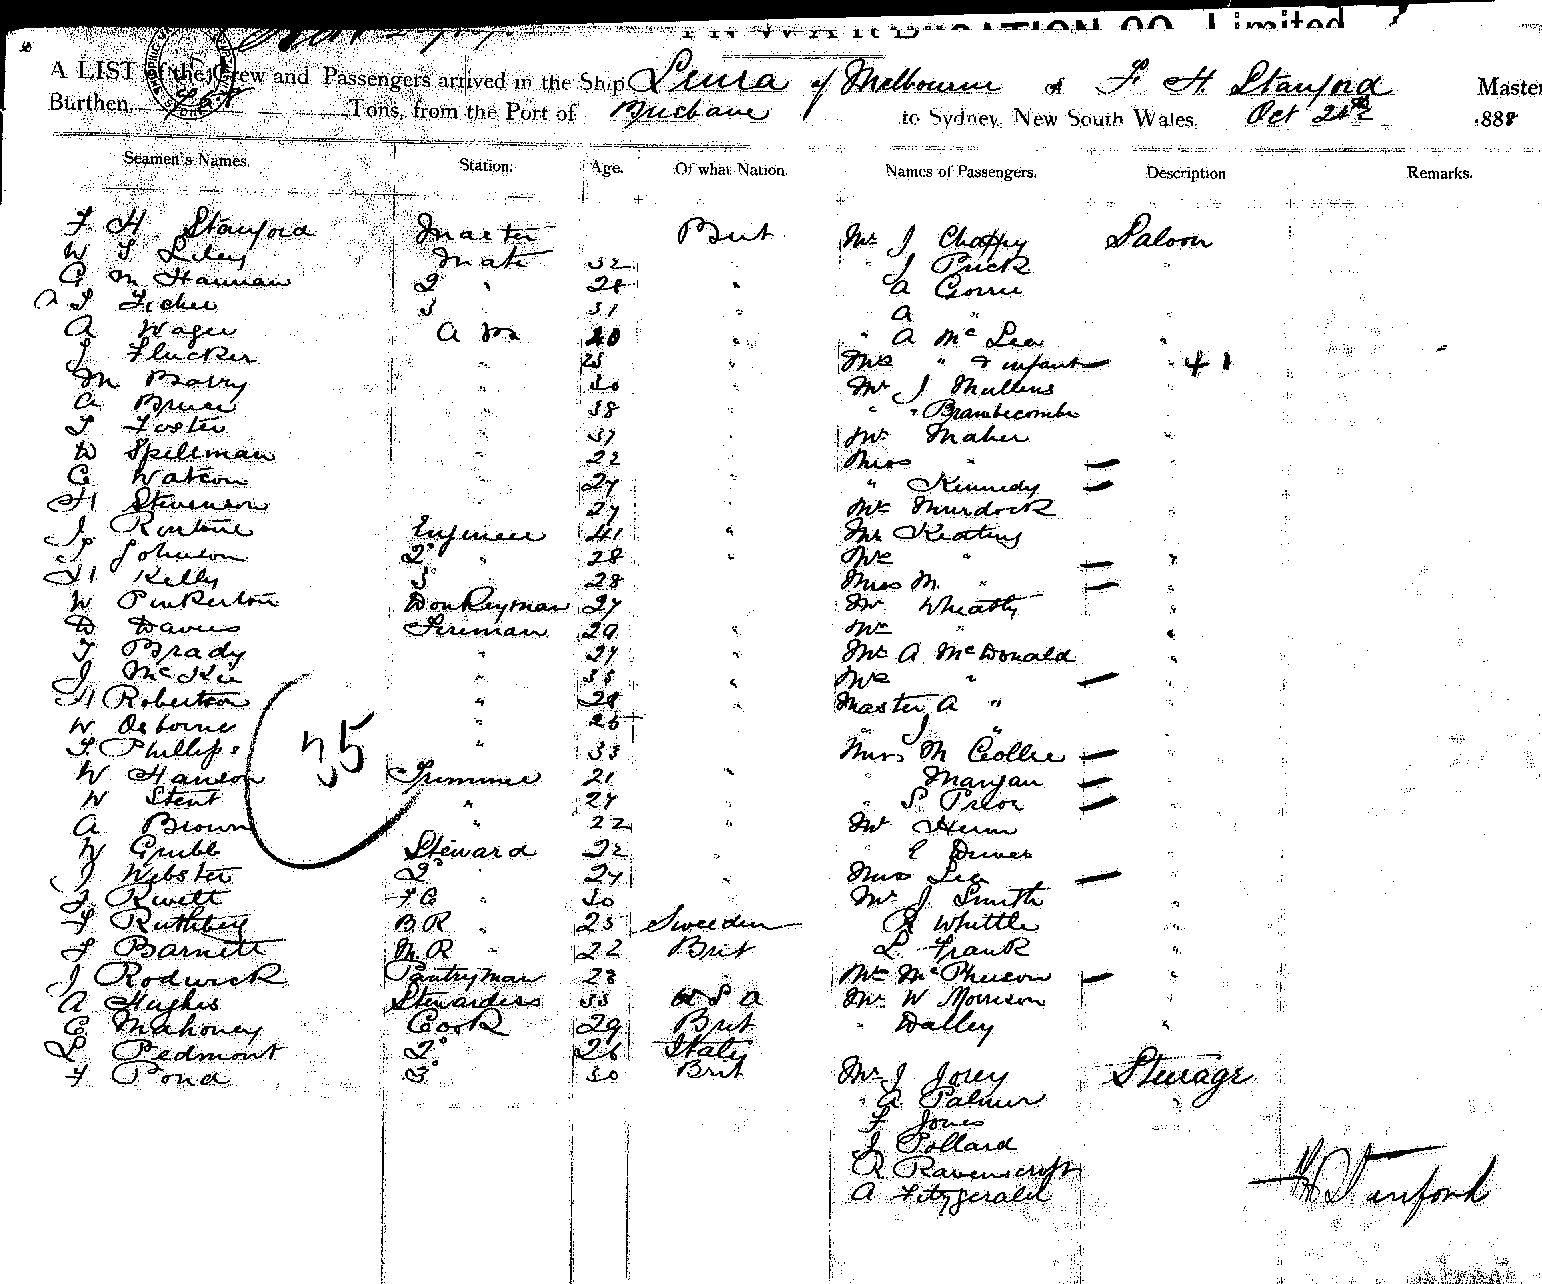 Limited
A LIST of the Crew and Passengers arrived in the Ship Leura of Melbourne F H Stanford Master
Burthen Tons, from the Port of Brisbane to Sydney, New South Wales, Oct 21st 1888
Seamen's Names. Station. Age. Of what Nation. Names of Passengers. Description Remarks.
F H Stanford Master Brit Mr J Saloon
W S Liley Mate 32 " J Puck
C McHannan 2 " 28 " A Gorrie
Fisher 3 31 " A "
A Wager A B 20 " " A McLea "
J Flucker " 25 " Mrs " & infant — " + 1
M Barry " 30 " Mr J Mullens
A Bruce " 38 " " " Brambecombe
T Foster " 37 " Mr Maher "
D Spillman " 22 " Miss " —
C Watson " 27 " " Kennedy —
H Stevenson " 27 " Mr Murdock
J Engineer 41 " Mr Keating
J Johnson 2° " 28 " Mrs " — "
H Kelly 3° 28 Miss M " — "
W Pinkerton Donkeyman 27 Mr Wheatly "
D Davies Fireman 29 " Mrs " "
T Brady " 27 " Mr A McDonald "
J McKee " 35 " Mrs " — "
H Robertson " 28 " Master A " "
W Osborne " 26 " J "
F Phillips " 33 Miss M Collie — "
35
W Hanson Trimmer 21 " " Mangan — "
W Stent " 27 " " S Prior — "
A Brown " 22 " Mr Herm "
W Gribb Steward 22 " E Driver "
J Webster 2° 27 " Miss Lea — "
F Rivett F C " 30 " Mr J Smith "
F B R " 25 Sweeden R Whittle "
F Barnett M R " 22 Brit L Frank "
J Rodwick Pantryman 28 Mrs McPherson — "
A Hughes Stewardess 35 U S A Mr W Morrison "
C Mahoney Cook 29 Brit " Dalley "
L Pedmont 2° 26 Italy
F Pond 3° 30 Brit Mr J Jorey Steerage
" A Palmer "
F Jones
J Pollard
R Ravenscroft
A Fitzgerald
F H Stanford